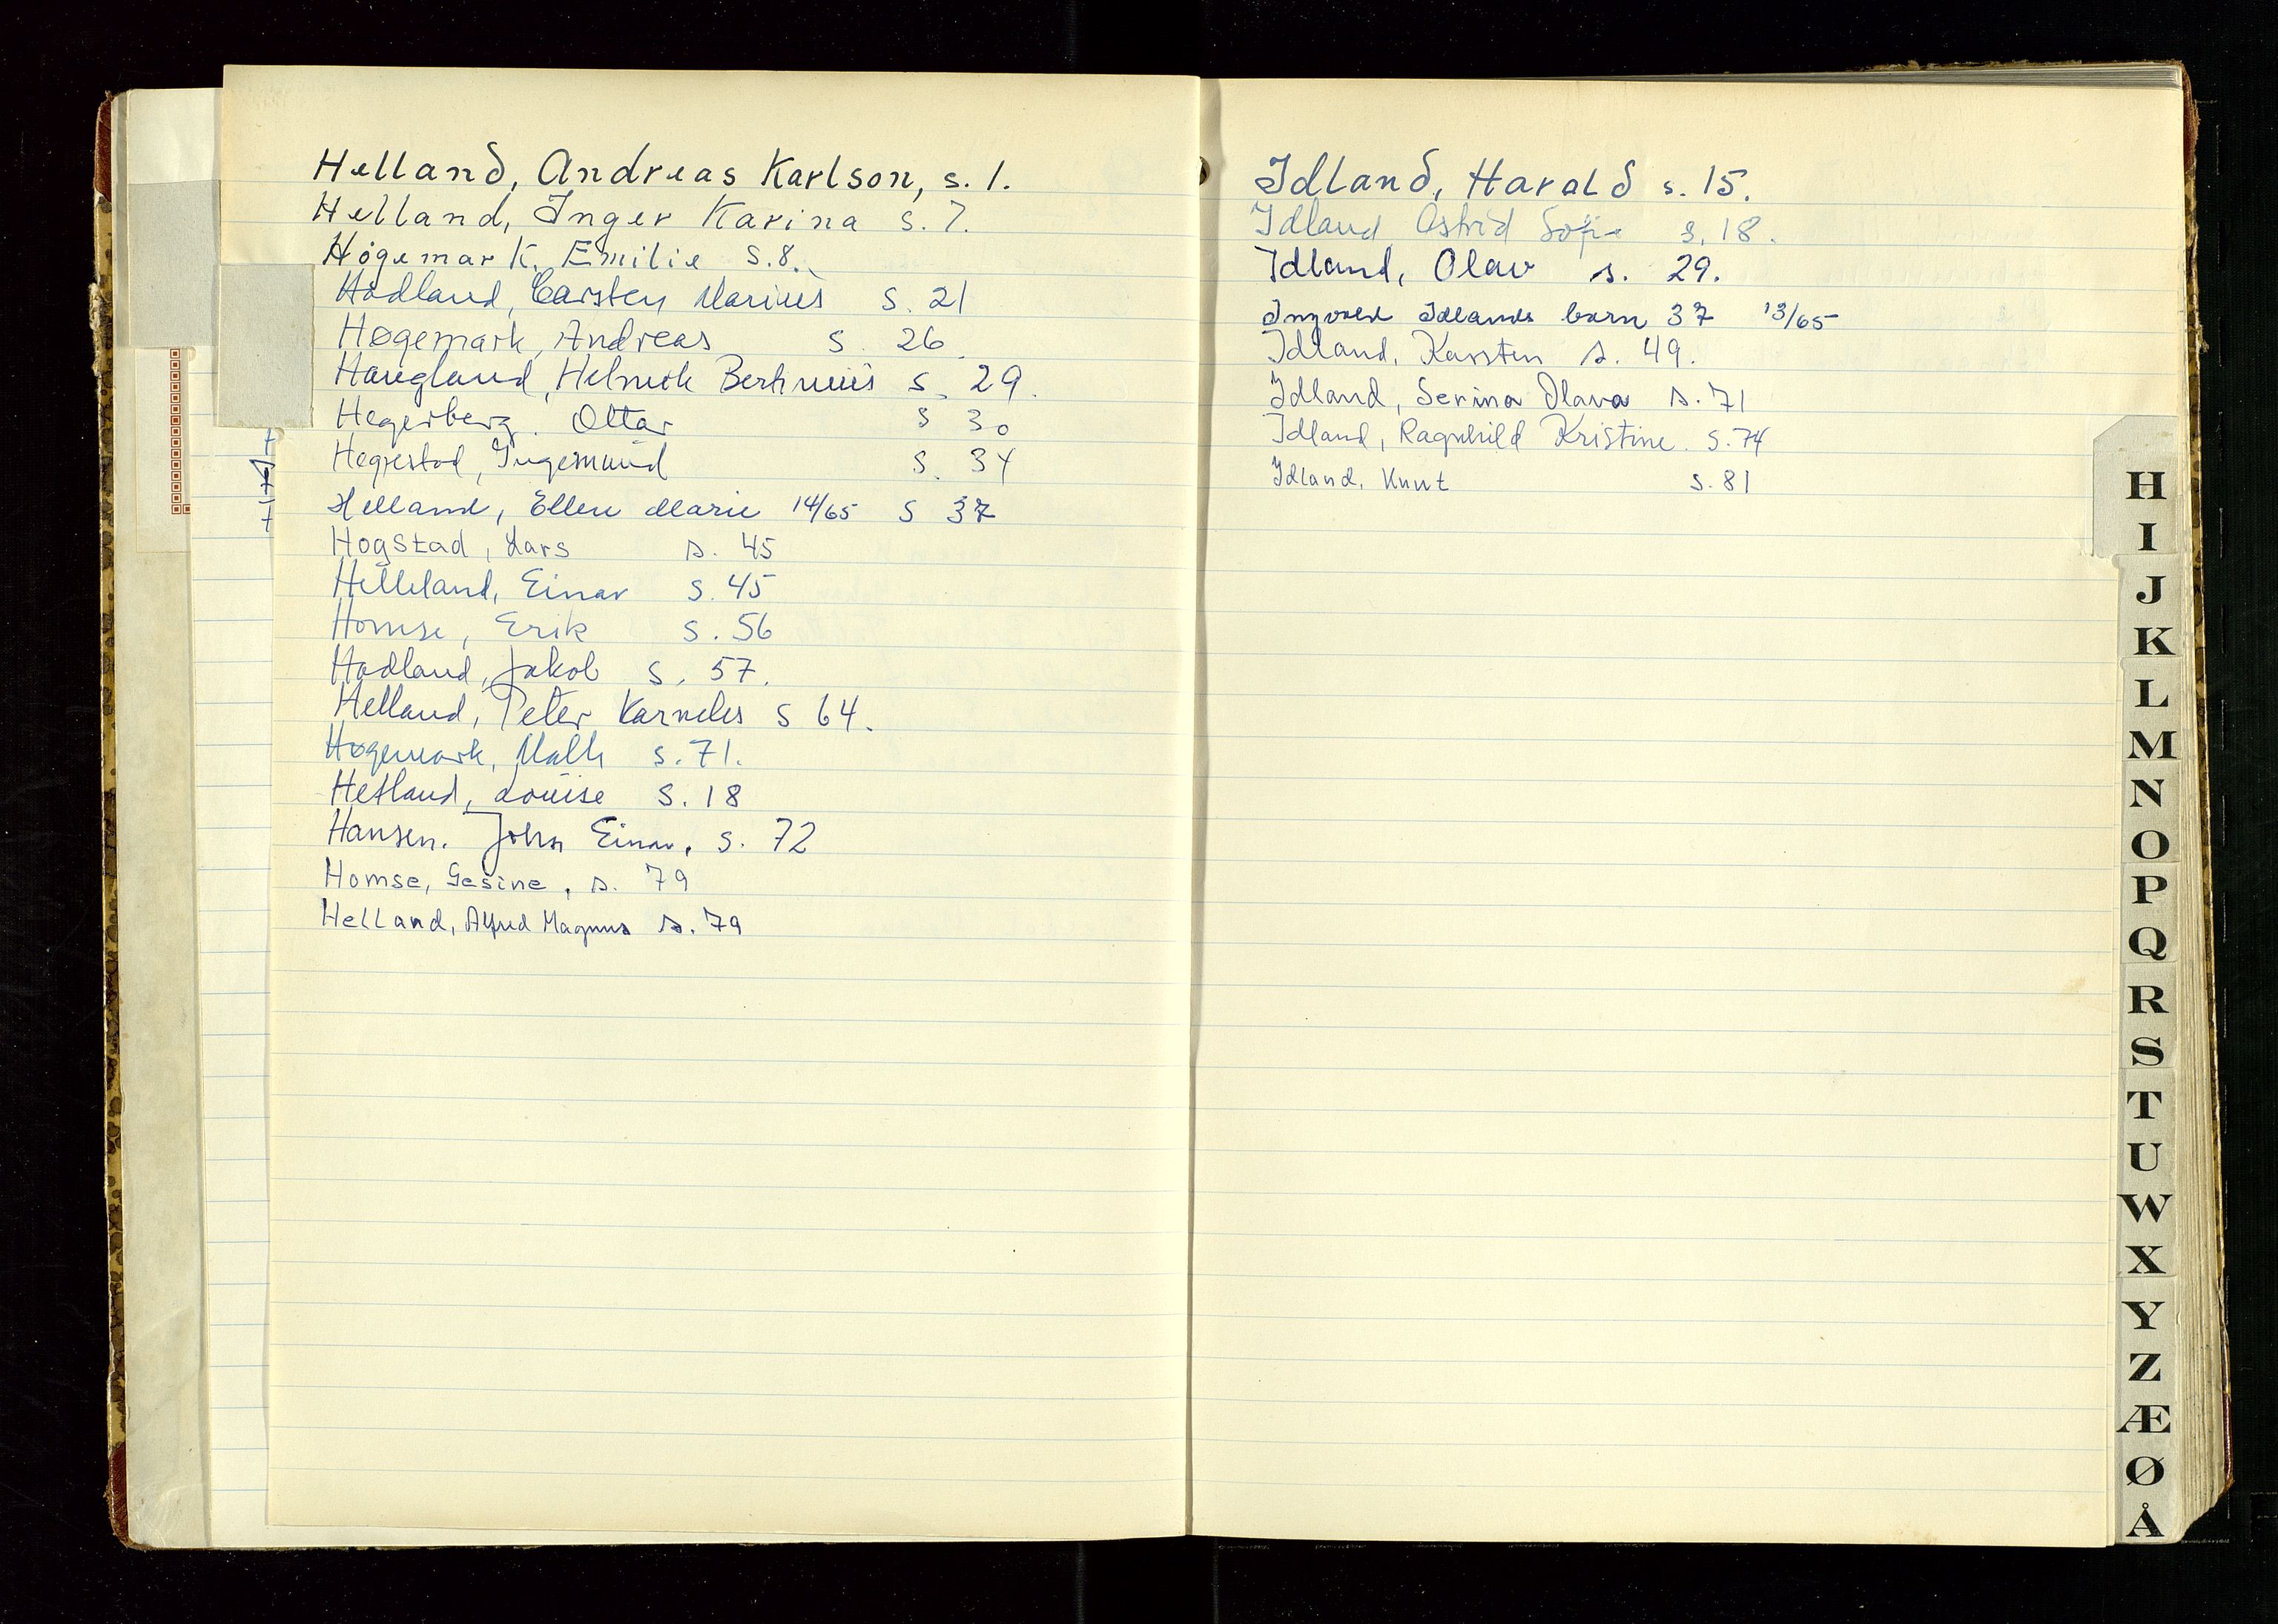 Helland, Andreas Karlson, s. 1.
Helland, Inger Karina s. 7.
Høgemark, Emilie s. 8.
Hadland, Carsten Marius s. 21
Høgemark, Andreas s. 26.
Haugland, Helmik Berhnuis s. 29.
Hegerberg. Ottar s 30
Hegrestad, Ingemund s. 34
Helland, Ellen Marie 14/65 s 37
Hogstad, Lars s. 45
Helleland, Einar s. 45
Homse, Erik s. 56
Hadland, Jakob s. 57.
Helland, Peter Karneles s 64.
Høgemark, Malli s. 71.
Hetland, Louise s. 18
Hansen. John Einar, s. 72
Homse, Gesine, s. 79
Helland, Alfred Magnus s. 79
Idland, Harald s. 15.
Idland Astrid Sofie s. 18.
Idland, Olav s. 29.
Ingvald Idlands barn 37 13/65
Idland, Karsten s. 49.
Idland, Serina Olava s. 71
Idland, Ragnhild Kristine. s. 74
Idland, Knut s. 81
H
I
J
K
L
M
N
O
P
Q
R
S
T
U
W
X
Y
Z
Æ
Ø
Å